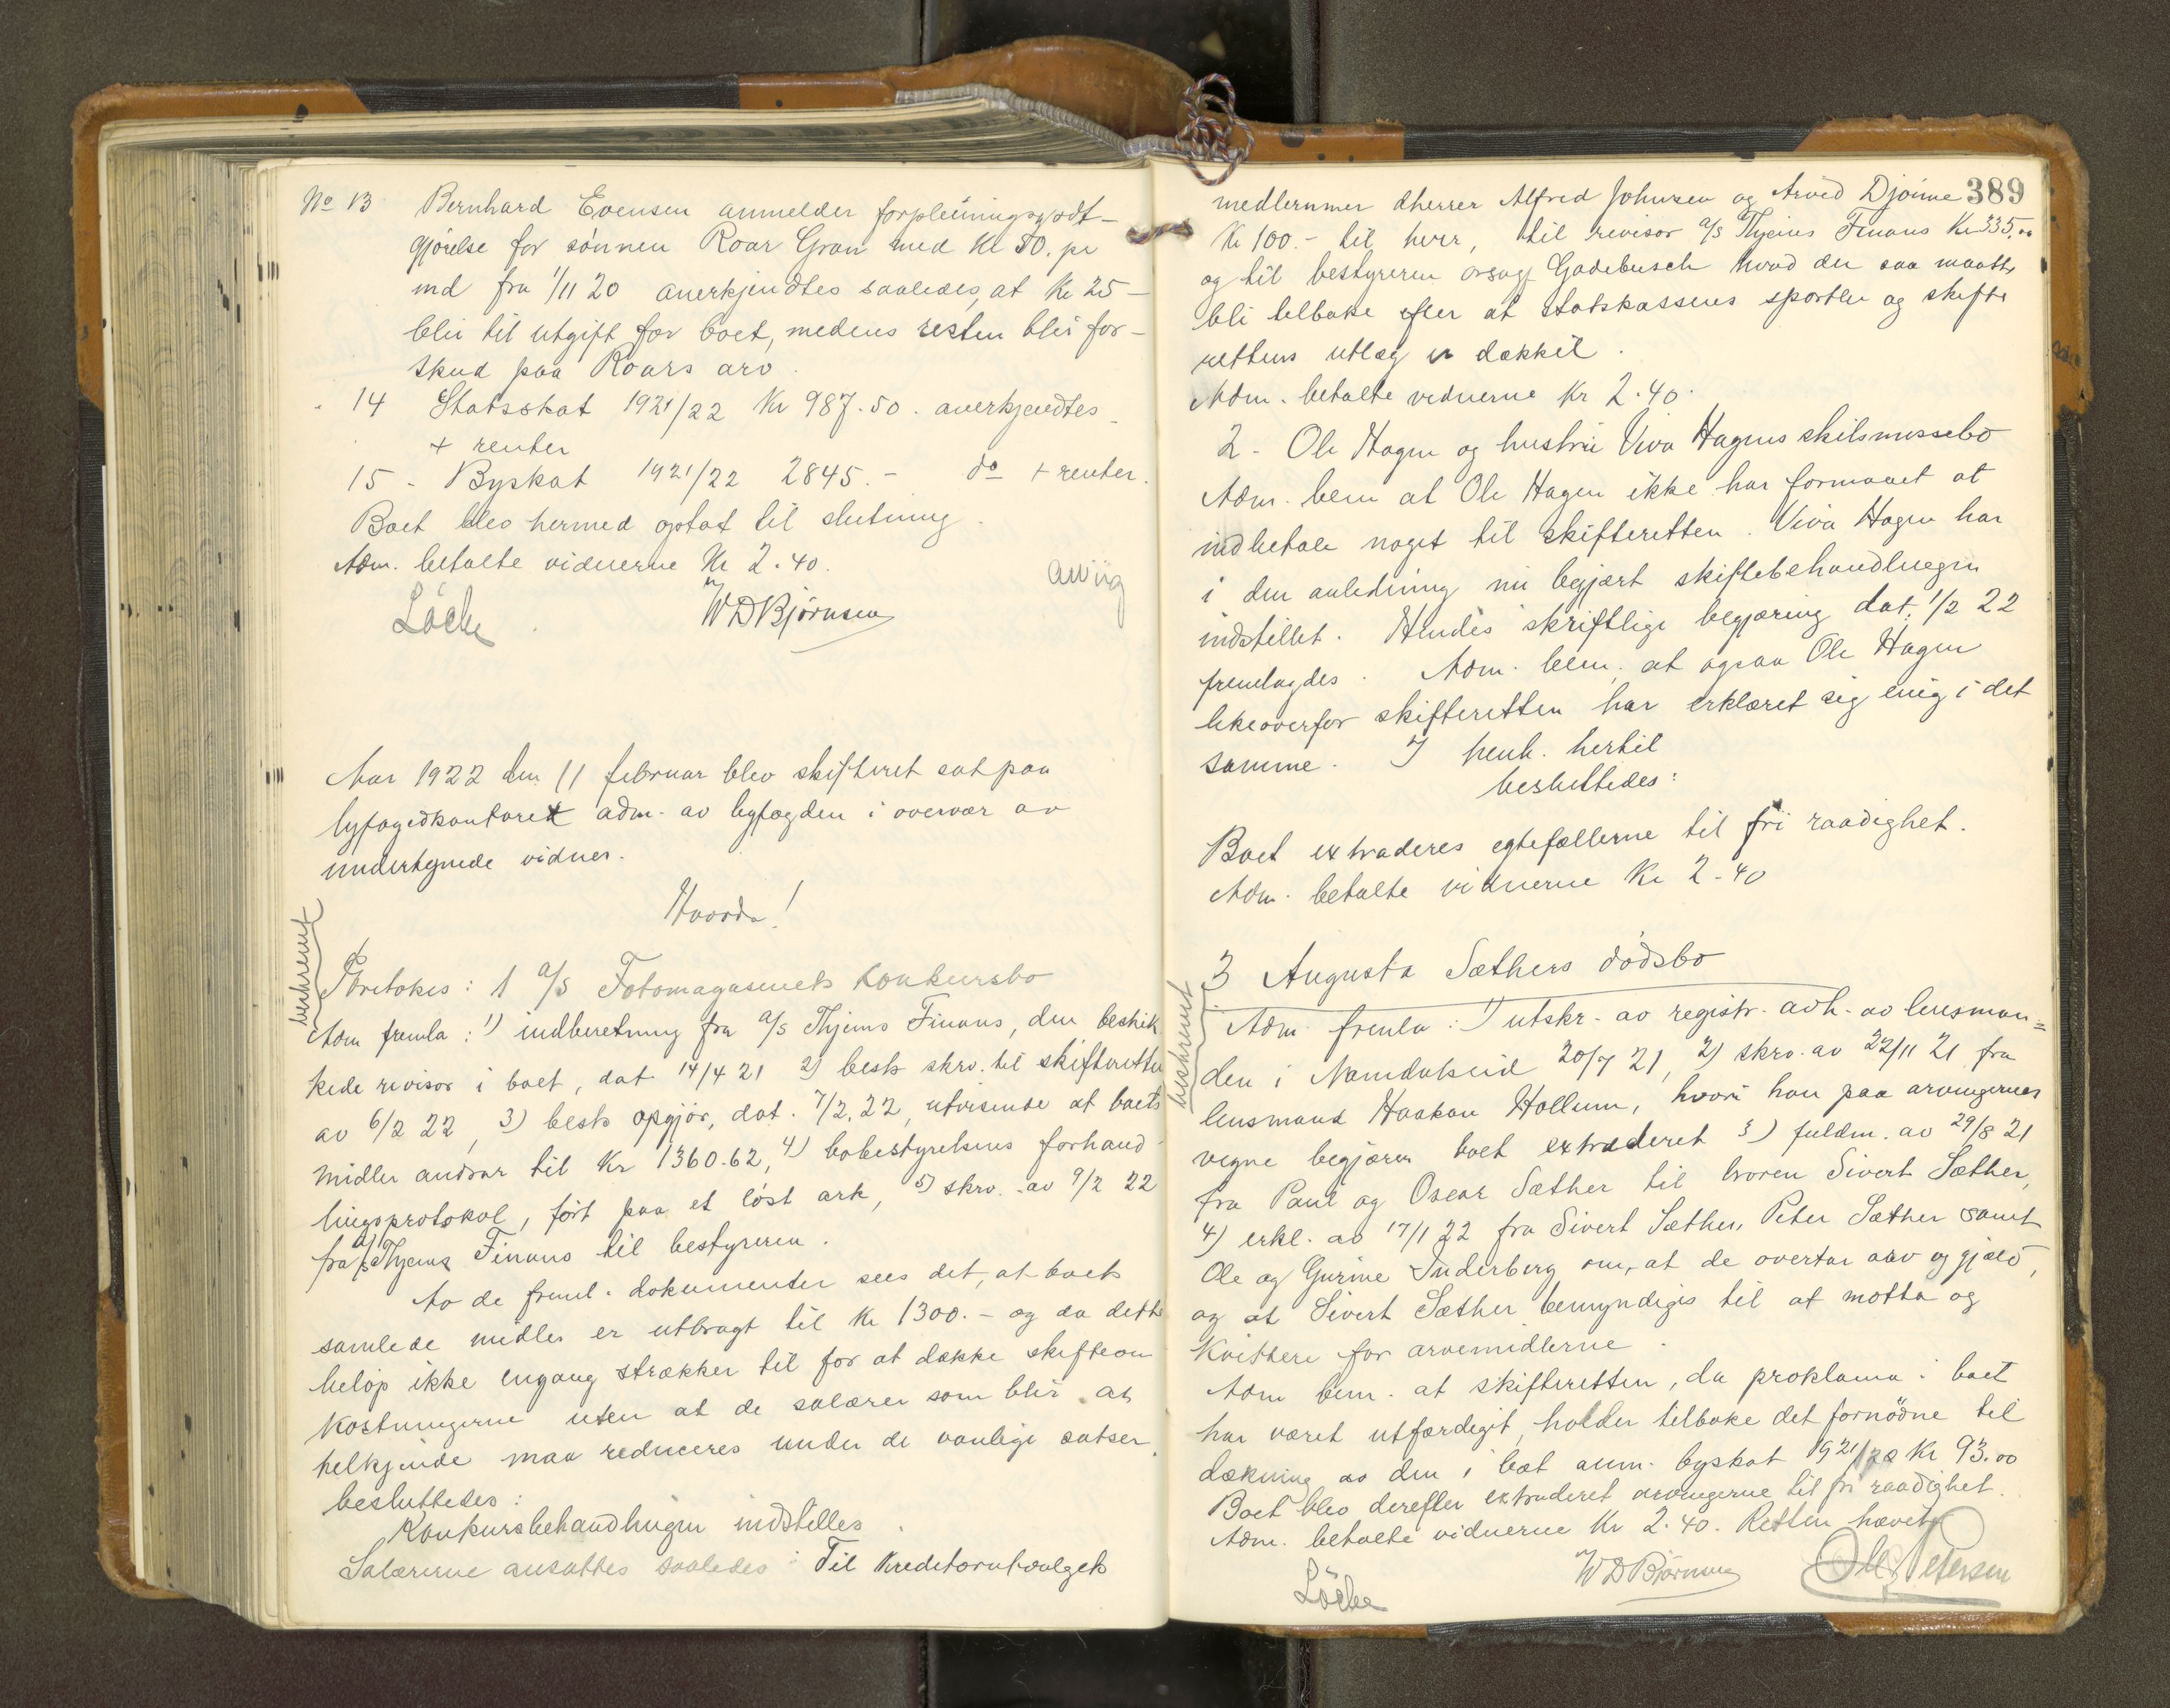 No 13 Bernhard Evensen anmelder forpleiningsgodt-
gjörelse for sönnen Roar Gran med Kr 50. pr
md fra 1/11 20 anerkjendtes saaledes, at Kr 25 -
blir til utgift for boet, medens resten blir for-
skud paa Roars arv.
14 Statsskat 1921/22 Kr 987.50. anerkjendtes
+ renter
15 - Byskat 1921/22 2845.- do + renter.
Boet blev hermed optat til slutning.
Adm. betalte vidnerne Kr 2.40.
Löcke WDBjörnsen
Aar 1922 den 11 februar blev skifteret sat paa
byfogedkontoret adm. av byfogden i overvær av
undertegnede vidner.
Hvorda!
beskrevet
Foretokes: 1 A/S Fotomagasinets konkursbo
Adm fremla: 1) indberetning fra A/S Thjems Finans, den beskik
kede revisor i boet, dat 14/4 21 2) bests skrv. til skifteretten
av 6/2 22, 3) bests opgjör, dat. 7/2.22, utvisende at boets
midler andrar til Kr 1360.62, 4) bobestyrelsens forhand-
lingsprotokol, fört paa et löst ark, 5) skrv. av 9/2 22
fra A/S Thjems Finans til bestyreren.
Av de freml. dokumenter sees det, at boets
samlede midler er utbragt til Kr 1300.- og da dette
belöp ikke engang strækker til for at dække skifteom
kostningerne uten at de salærer som blir at
tilkjende maa reduceres under de vanlige satser,
besluttedes:
Konkursbehandlingen indstilles.
Salærerne ansattes saaledes: Til Kreditorutvalgets
389
medlemmer dherrer Alfred Johnsen og Arvid Djönne
Kr 100.- til hver, til revisor A/S Thjems Finans Kr 335.00
og til bestyreren orsagf Gadebusch hvad der saa maatte
bli tilbake efter at statskassens sportler og skifte
rettens utlæg er dækket.
Adm. betalte vidnerne Kr 2.40.
2 - Ole Hagen og hustru Viva Hagens skilsmissebo
Adm. bem at Ole Hagen ikke har formaaet at
indbetale noget til skifteretten. Viva Hagen har
i den anledning nu begjært skiftebehandlingen
indstillet. Hendes skriftlige begjæring dat. 1/2 22
fremlagdes. Adm. bem. at ogsaa Ole Hagen
likeoverfor skifteretten har erklæret sig enig i det
samme. I henh. hertil
besluttedes:
Boet extraderes egtefællerne til fri raadighet.
Adm. betalte vidnerne Kr 2-40
3 Augusta Sæthers dödsbo
beskrevet
Adm. fremla: 1) utskr. av registr. avh. av lensman=
den i Namdalseid 20/7 21, 2) skrv. av 22/11 21 fra
lensmand Haakon Hollum, hvori han paa arvingernes
vegne begjærer boet extraderet 3) fuldm. av 29/8 21
fra Paul og Oscar Sæther til broren Sivert Sæther,
4) erkl. av 17/1 22 fra Sivert Sæther, Peter Sæther samt
Ole og Gurine Inderberg om, at de overtar arv og gjæld,
og at Sivert Sæther bemyndiges til at motta og
kvittere for arvemidlerne.
Adm bem. at skifteretten, da proklama i boet
har været utfærdiget, holder tilbake det fornödne til
dækning av den i boet anm. byskat 1921/22 Kr 93.00
Boet blev derefter extraderet arvingerne til fri raadighet.
Adm. betalte vidnerne Kr 2.40. Retten hævet
Löcke WDBjörnsen Petersen